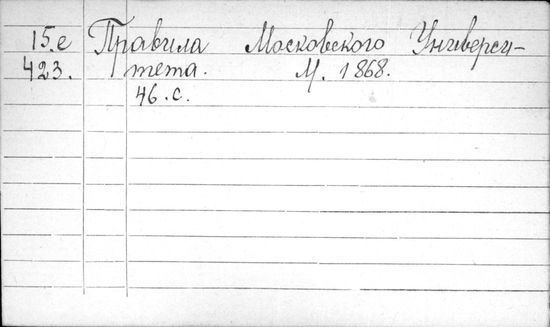 15.е Правила Московского Универси-
423. тета. М. 1868.
46. с.